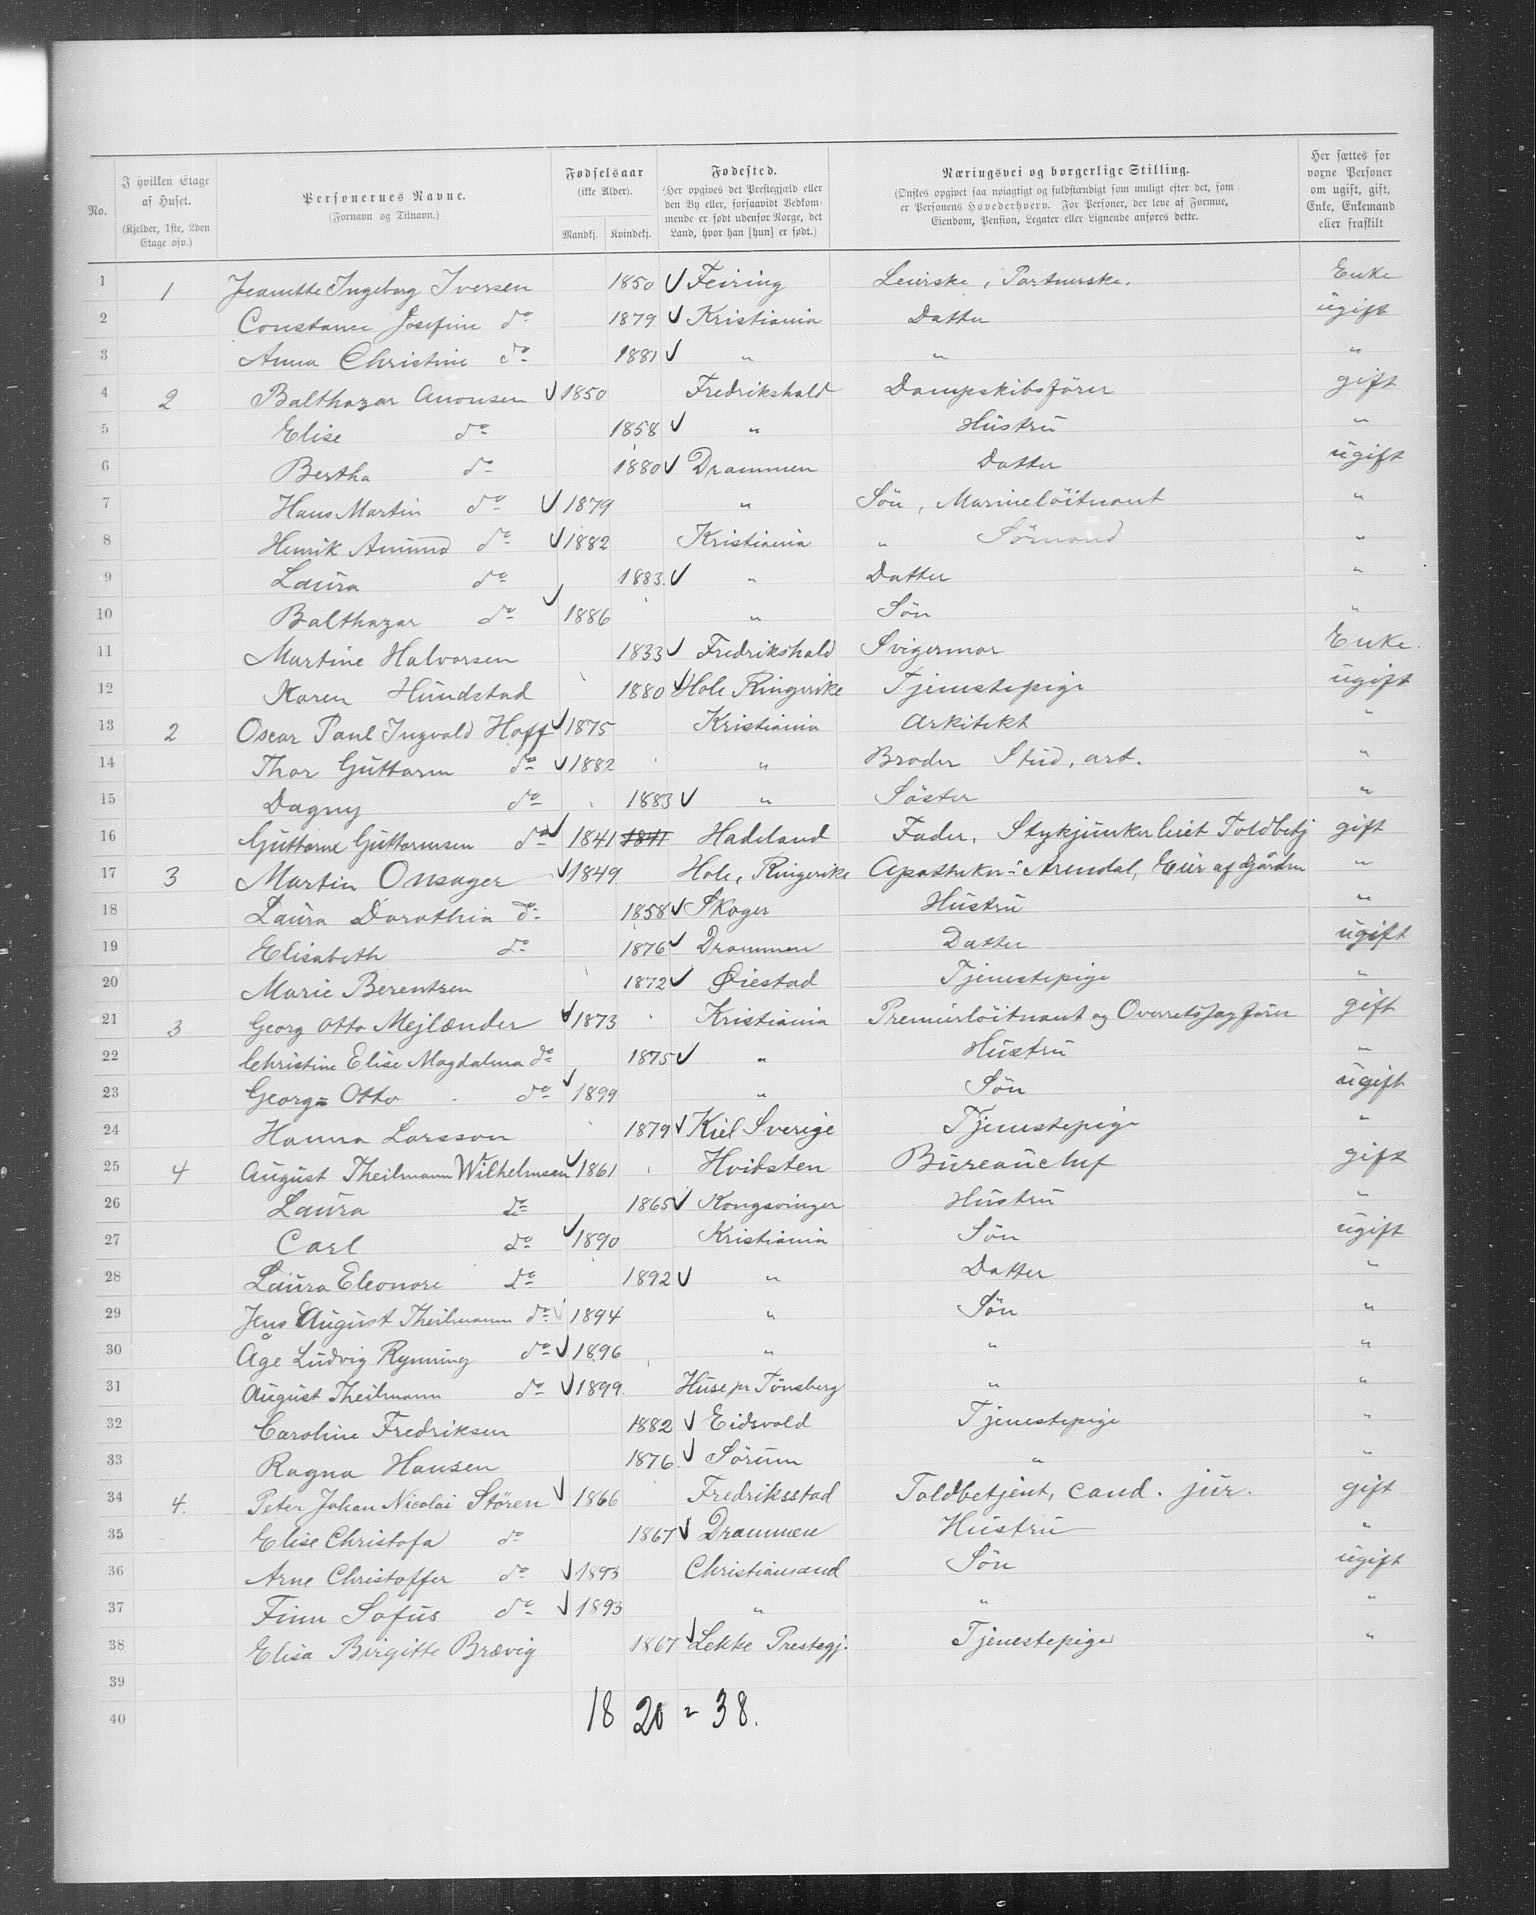 No. | I hvilken Etage af Huset. (Kjelder, 1ste, 2den Etage osv.) | Personernes Navne. (Fornavn og Tilnavn.) | Fødselsaar (ikke Alder). Mandkj. Kvindekj. | Fødested. (Her opgives det Prestegjæld eller den By eller, forsaavidt Vedkommende er født udenfor Norge, det Land, hvor han [hun] er født.) | Næringsvei og borgerlige Stilling. (Ønskes opgivet saa nøiagtigt og fuldstændigt som muligt efter det, som er Personens Hovederhverv. For Personer, der leve af Formue, Eiendom, Pension, Legater eller Lignende anføres dette.) | Her sættes for voxne Personer om ugift, gift, Enke, Enkemand eller fraskilt.
1 1 Jeanette Ingeborg Iversen 1850 ✓ Feiring Leierske, Enke
2 Constance Josefine do 1879 ✓ Kristiania Datter ugift
3 Anna Christine do 1881 ✓ " " "
4 2 Balthazar Anonsen ✓ 1850 Fredrikshald Dampskibsfører gift
5 Elise do 1858 ✓ " Hustru "
6 Bertha do 1880 ✓ Drammen Datter ugift
7 Hans Martin do ✓ 1879 " Søn, Marineløitnant "
8 Henrik Amund do ✓ 1882 Kristiania " Sømand "
9 Laura do 1883. ✓ " Datter "
10 Balthazar do ✓ 1886 " Søn "
11 Martine Halvorsen 1833 ✓ Fredrikshald Svigermor Enke.
12 Karen Hundstad 1880 ✓ Hole Ringerike Tjenestepige ugift
13 2 Oscar Paul Ingvald Hoff ✓ 1875 Kristiania Arkitekt "
14 Thor Guttorm do ✓ 1882 " Broder Stud. art. "
15 Dagny do 1883 ✓ " Søster "
16 Guttorm Guttormsen do ✓ 1841 1841 Hadeland Fader, Stykjunker Toldbetj gift
17 3 Martin Onsager ✓ 1849 Hole, Ringerike Apotheker i Arendal, Eier af Gården "
18 Laura Dorothia do 1858 ✓ Skoger Hustru "
19 Elisabeth do 1876 ✓ Drammen Datter ugift
20 Marie Berentsen 1872 ✓ Øiestad Tjenestepige "
21 3 Georg Otto Mejlænder ✓ 1873 Kristiania Premierløitnant og Overretssagfører gift
22 Christine Elise Magdalena do 1875 ✓ " Hustru "
23 Georg Otto do ✓ 1899 " Søn ugift
24 Hanna Larsson 1879 ✓ Kiel Sverige Tjenestepige "
25 4 August Theilmann Wilhelmsen ✓ 1861 Hvidsten Bureauchef gift
26 Laura do 1865 ✓ Kongsvinger Hustru "
27 Carl do ✓ 1890 Kristiania Søn ugift
28 Laura Eleonore do 1892 ✓ " Datter "
29 Jens August Theilmann do ✓ 1894 " Søn "
30 Åge Ludvig Rynning do ✓ 1896 " " "
31 August Theilmann do ✓ 1899. Huse pr Tønsberg " "
32 Caroline Fredriksen 1882 ✓ Eidsvold Tjenestepige "
33 Ragna Hansen 1876 ✓ Sørum " "
34 4. Peter Johan Nicolai Stören ✓ 1866 Fredriksstad Toldbetjent, cand. jur. gift
35 Elise Christofa do 1867 ✓ Drammen Hustru "
36 Arne Christoffer do ✓ 1893 Christiansand Søn ugift
37 Finn Sofus do ✓ 1893 " " "
38 Elisa Birgitte Brævig 1867 ✓ Lekke Prestegj. Tjenestepige "
39
40
18 20 = 38.